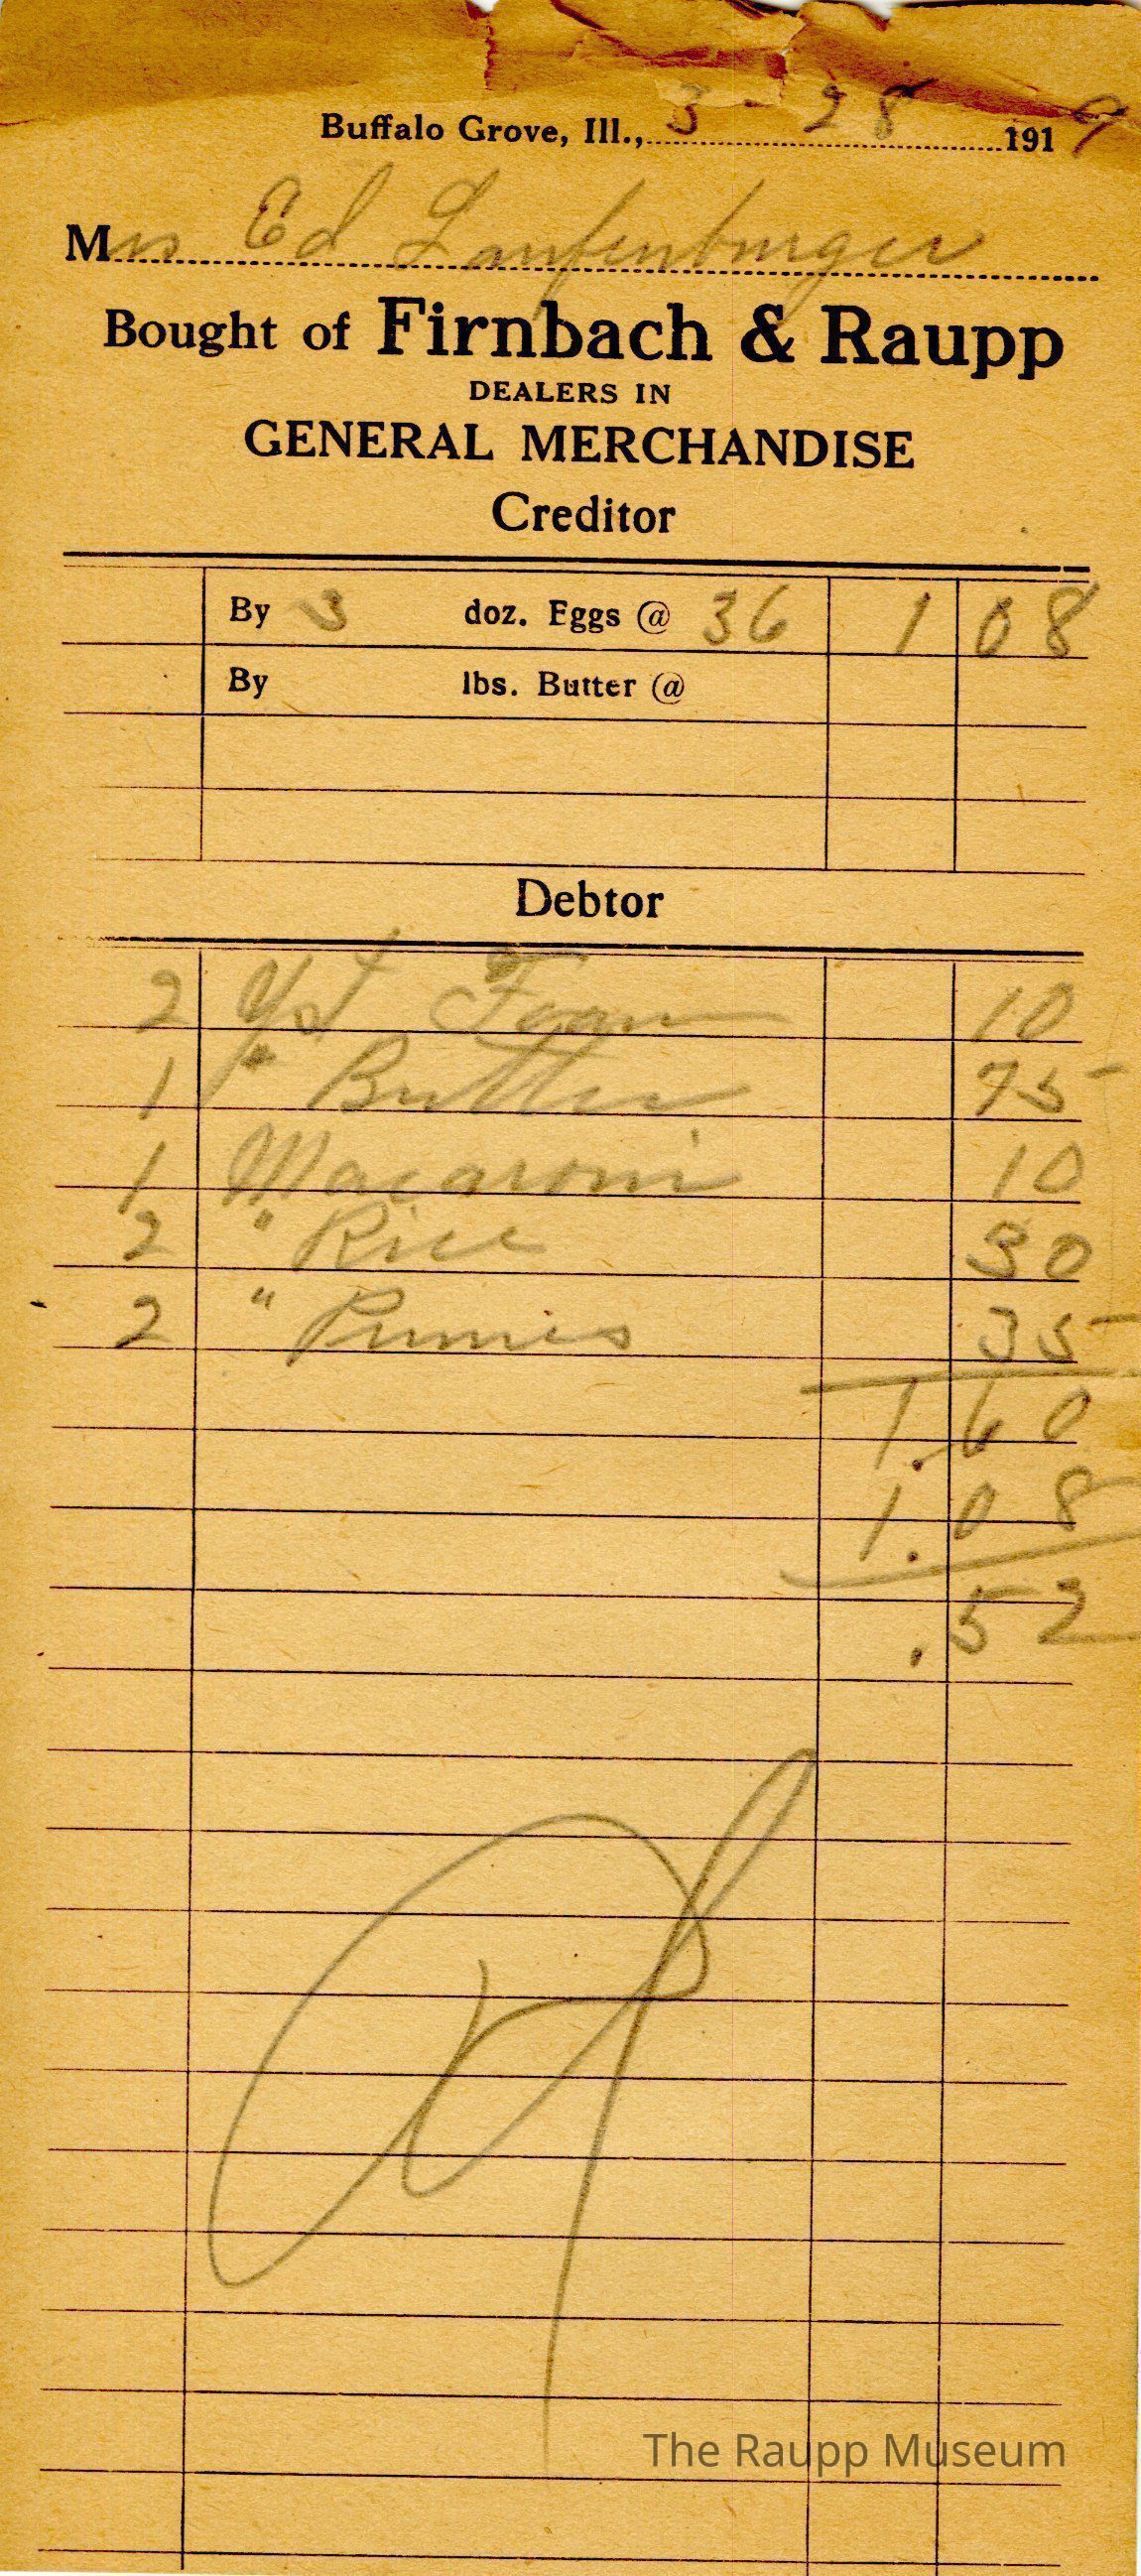 Buffalo Grove, Ill., 3 - 28 1919
Mrs Ed Laufenburger
Bought of Firnbach & Raupp
DEALERS IN
GENERAL MERCHANDISE
Creditor
By 3 doz. Eggs @ 36 1 08
By lbs. Butter @
Debtor
2 Yst Foam 10
1 " Butter 75
1 Macaroni 10
2 " Rice 30
2 " Prunes 35
1.60
1.08
.52
The Raupp Museum